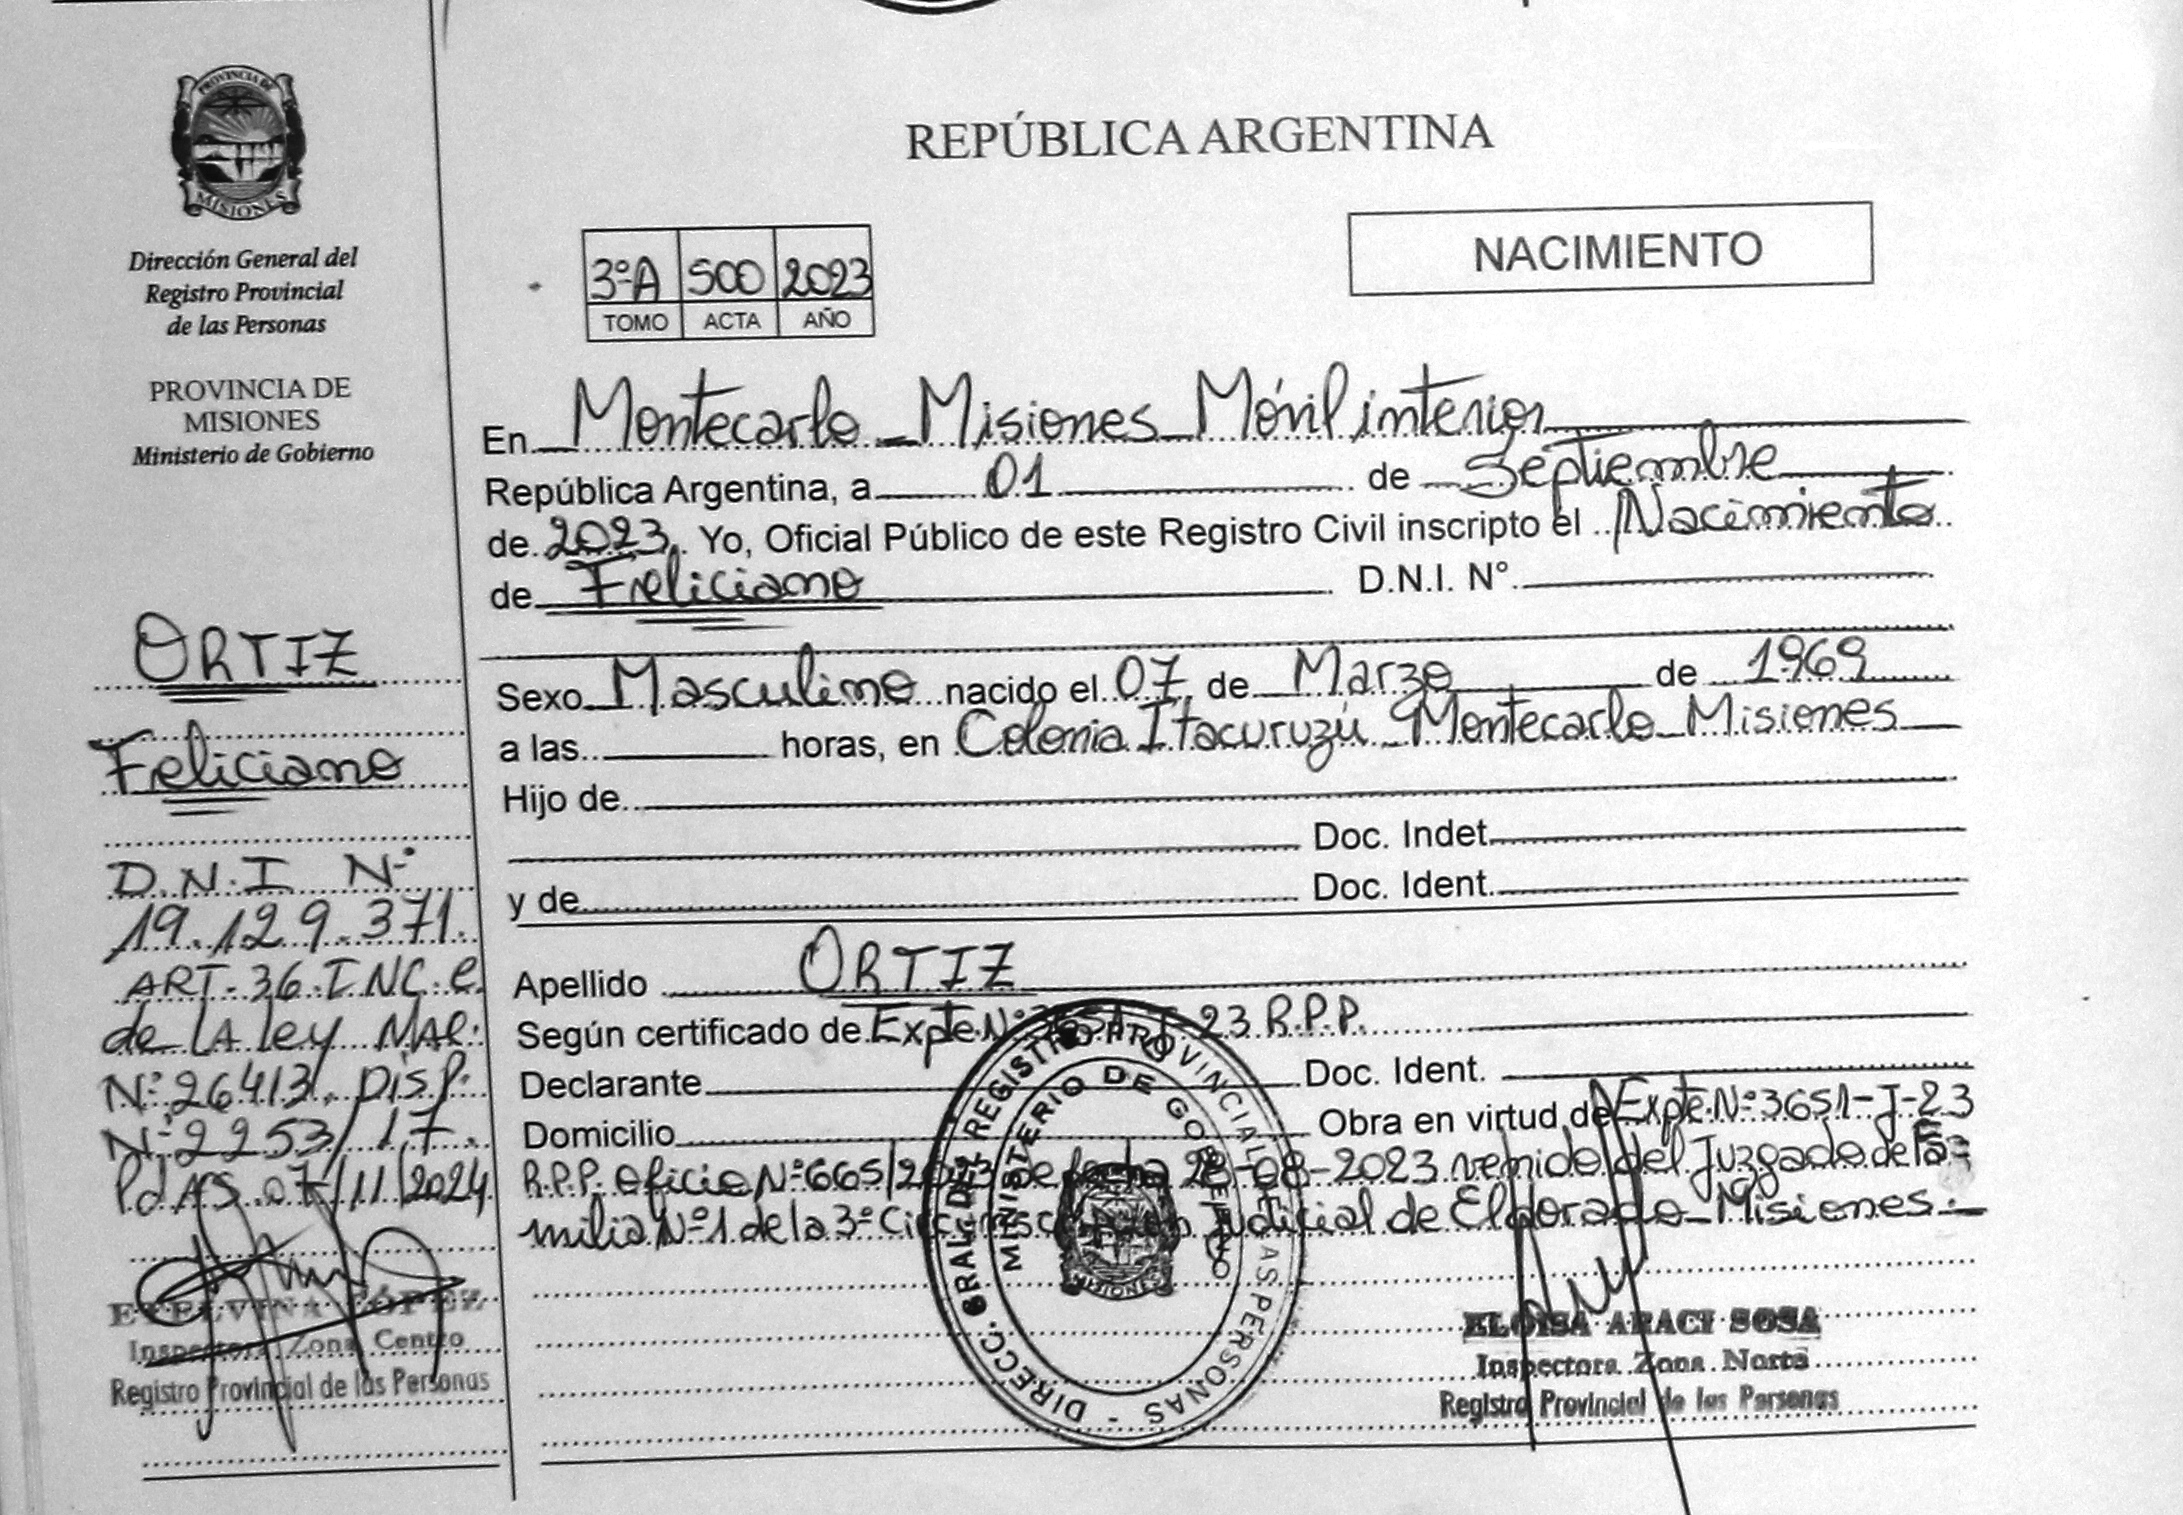 PROVINCIA DE
MISIONES
Dirección General del
Registro Provincial
de las Personas
PROVINCIA DE
MISIONES
Ministerio de Gobierno
ORTIZ
Feliciano
D.N.I Nº
19.129.371.
ART. 36 INC. C.
de LA Ley NAC.
Nº 26413. DISP.
Nº 2253/17.
PdAS 07/11/2024
ETELVINA LÓPEZ
Inspectora Zona Centro
Registro Provincial de las Personas
REPÚBLICA ARGENTINA
NACIMIENTO
3ºA 500 2023
TOMO ACTA AÑO
En Montecarlo _ Misiones _ Móvil interior
República Argentina, a 01 de Septiembre
de 2023. Yo, Oficial Público de este Registro Civil inscripto el Nacimiento
de Feliciano D.N.I. N°
Sexo Masculino nacido el 07 de Marzo de 1969
a las horas, en Colonia Itacuruzú _ Montecarlo _ Misiones
Hijo de
Doc. Indet
y de Doc. Ident.
Apellido ORTIZ
Según certificado de Expte Nº 3651-J-23 R.P.P.
Declarante Doc. Ident.
Domicilio Obra en virtud de Expte Nº 3651-J-23
R.P.P. oficio Nº 665/2023 de fecha 28-08-2023 venido del Juzgado de Fa=
milia Nº 1 de la 3º Circunscripción Judicial de Eldorado _ Misiones.
DIRECC. GRAL. DEL REGISTRO PROVINCIAL DE LAS PERSONAS
MINISTERIO DE GOBIERNO
MISIONES
ELOISA ARACI SOSA
Inspectora Zona Norte
Registro Provincial de las Personas